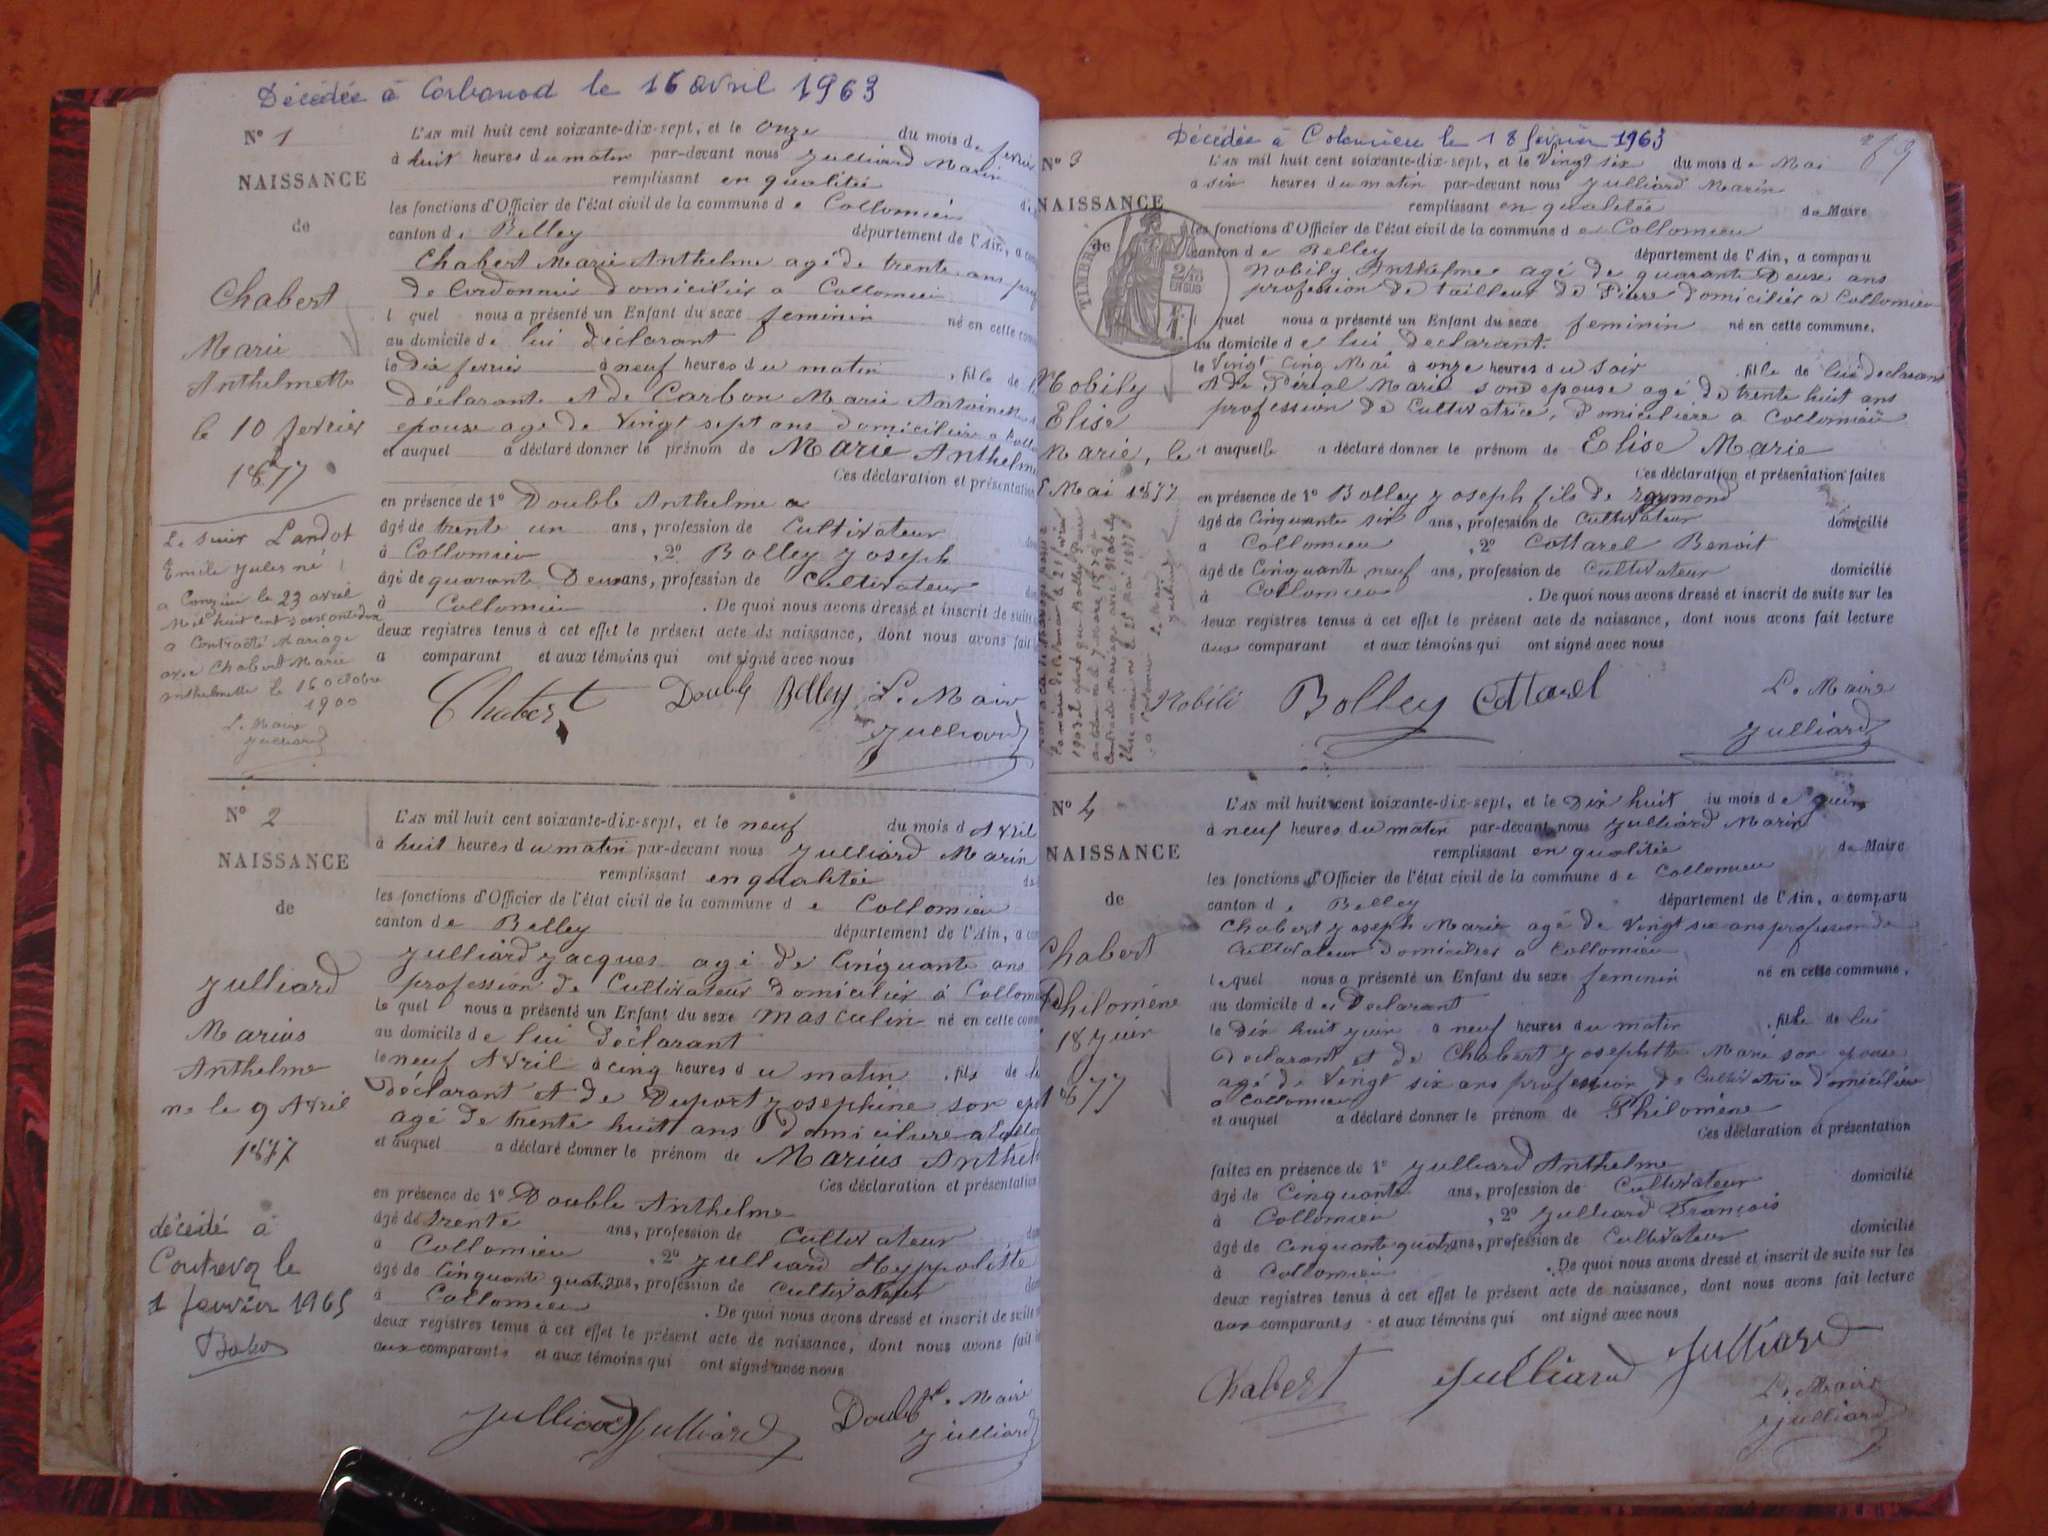 Décédée à Corbonod le 16 avril 1963
N° 1
NAISSANCE
de
Chabert
Marie
Anthelmette
le 10 fevrier
1877
Le sieur Landot
Emile Jules né
a Conzieu le 23 avril
Mil huit cent soixante dix
a Contracté Mariage
avec Chabert Marie
Anthelmette le 16 octobre
1900
Le Maire
Julliard
L'AN mil huit cent soixante-dix-sept, et le onze du mois de fevrier
à huit heures du matin par-devant nous Julliard Marin
remplissant en qualitée
les fonctions d'Officier de l'état civil de la commune de Collomieu
canton de Belley département de l'Ain, a
Chabert Marie Anthelme agé de trente ans
de Cordonnier domicilier a Collomieu
lequel nous a présenté un Enfant du sexe feminin né en cette
au domicile de lui déclarant
le Dix fevrier à neuf heures du matin, fille de
déclarant et de Carbon Marie Antoinette
epouse agé de Vingt sept ans domicilière a
et auquel a déclaré donner le prénom de Marie
Ces déclaration et présentation
en présence de 1° Double Anthelme
âgé de trente un ans, profession de Cultivateur
à Collomieu, 2° Bolley Joseph
âgé de quarante Deux ans, profession de Cultivateur
à Collomieu. De quoi nous avons dressé et inscrit de suite
deux registres tenus à cet effet le présent acte de naissance, dont nous avons fait
a comparant et aux témoins qui ont signé avec nous
Chabert Double Bolley Le Maire
Julliard
N° 2
NAISSANCE
de
Julliard
Marius
Anthelme
ne le 9 Avril
1877
décédé à
le
1 fevrier 1965
L'AN mil huit cent soixante-dix-sept, et le neuf du mois d Avril
à huit heures du matin par-devant nous Julliard Marin
remplissant en qualitée
les fonctions d'Officier de l'état civil de la commune de Collomieu
canton de Belley département de l'Ain, a
Julliard Jacques agé de Cinquante ans
profession de Cultivateur domicilier à
lequel nous a présenté un Enfant du sexe masculin né en cette
au domicile de lui déclarant
le neuf Avril à cinq heures du matin, fils de
déclarant et de Duport Josephine son
agé de trente huit ans domicilière a
et auquel a déclaré donner le prénom de Marius
Ces déclaration et présentation
en présence de 1° Double Anthelme
âgé de trente ans, profession de Cultivateur
à Collomieu, 2° Julliard Hyppolitte
âgé de Cinquante quatre ans, profession de Cultivateur
à Collomieu. De quoi nous avons dressé et inscrit de suite
deux registres tenus à cet effet le présent acte de naissance, dont nous avons fait
aux comparants et aux témoins qui ont signé avec nous
Julliard Julliard Double Le Maire
Julliard
Décédée à Colomieu le 18 février 1963
N° 3
NAISSANCE
de
TIMBRE
2/10
EN SUS
Nobily
Elise
Marie, le
Mai 1877
L'AN mil huit cent soixante-dix-sept, et le Vingt six du mois de Mai
à six heures du matin par-devant nous Julliard Marin
remplissant en qualitée de Maire
les fonctions d'Officier de l'état civil de la commune de Collomieu
canton de Belley département de l'Ain, a comparu
Nobily Anthelme agé de quarante Deux ans
profession de tailleur de Pierre domicilier a Collomieu
lequel nous a présenté un Enfant du sexe feminin né en cette commune,
au domicile de lui declarant
le Vingt Cinq Mai à onze heures du soir, fille de lui declarant
et de Marie son epouse agé de trente huit ans
profession de Cultivatrice, domiciliere a Collomieu
et auquelle a déclaré donner le prénom de Elise Marie
Ces déclaration et présentation faites
en présence de 1° Bolley Joseph fils de raymond
âgé de Cinquante six ans, profession de Cultivateur domicilié
à Collomieu, 2° Cottarel Benoit
âgé de Cinquante neuf ans, profession de Cultivateur domicilié
à Collomieu. De quoi nous avons dressé et inscrit de suite sur les
deux registres tenus à cet effet le présent acte de naissance, dont nous avons fait lecture
aux comparant et aux témoins qui ont signé avec nous
Nobili Bolley Cottarel Le Maire
Julliard
N° 4
NAISSANCE
de
Chabert
Philomène
18 Juin
1877
L'AN mil huit cent soixante-dix-sept, et le Dix huit du mois de Juin
à neuf heures du matin par-devant nous Julliard Marin
remplissant en qualitée de Maire
les fonctions d'Officier de l'état civil de la commune de Collomieu
canton de Belley département de l'Ain, a comparu
Chabert Joseph Marie agé de Vingt six ans profession de
Cultivateur domicilier a Collomieu
lequel nous a présenté un Enfant du sexe feminin né en cette commune,
au domicile de Declarant
le Dix huit Juin à neuf heures du matin, fille de lui
Declarant et de Chabert Josephtte Marie son epouse
agé de Vingt six ans profession de Cultivatrice domicilière
a Collomieu
et auquel a déclaré donner le prénom de Philomène
Ces déclaration et présentation
faites en présence de 1° Julliard Anthelme
âgé de Cinquante ans, profession de Cultivateur domicilié
à Collomieu, 2° Julliard François
âgé de Cinquante quatre ans, profession de Cultivateur domicilié
à Collomieu. De quoi nous avons dressé et inscrit de suite sur les
deux registres tenus à cet effet le présent acte de naissance, dont nous avons fait lecture
aux comparants et aux témoins qui ont signé avec nous
Chabert Julliard Julliard
Le Maire
Julliard